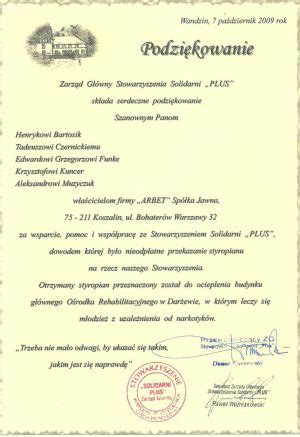 Wandzin, 7 październik 2009 rok
Podziękowanie
Zarząd Główny Stowarzyszenia Solidarni „PLUS”
składa serdeczne podziękowanie
Szanownym Panom
Henrykowi Bartosik
Tadeuszowi Czernickiemu
Edwardowi Grzegorzowi Funke
Krzysztofowi Kuncer
Aleksandrowi Muzyczuk
właścicielom firmy „ARBET” Spółka Jawna,
75 - 211 Koszalin, ul. Bohaterów Warszawy 32
za wsparcie, pomoc i współpracę ze Stowarzyszeniem Solidarni „PLUS”,
dowodem której było nieodpłatne przekazanie styropianu
na rzecz naszego Stowarzyszenia.
Otrzymany styropian przeznaczony został do ocieplenia budynku
głównego Ośrodka Rehabilitacyjnego w Darżewie, w którym leczy się
młodzież z uzależnienia od narkotyków.
„Trzeba nie mało odwagi, by ukazać się takim,
jakim jest się naprawdę”
STOWARZYSZENIE
„SOLIDARNI
PLUS”
Zarząd Główny
Sekretarz Zarządu Głównego
Stowarzyszenia Solidarni „PLUS”
Paweł Woźniakowski